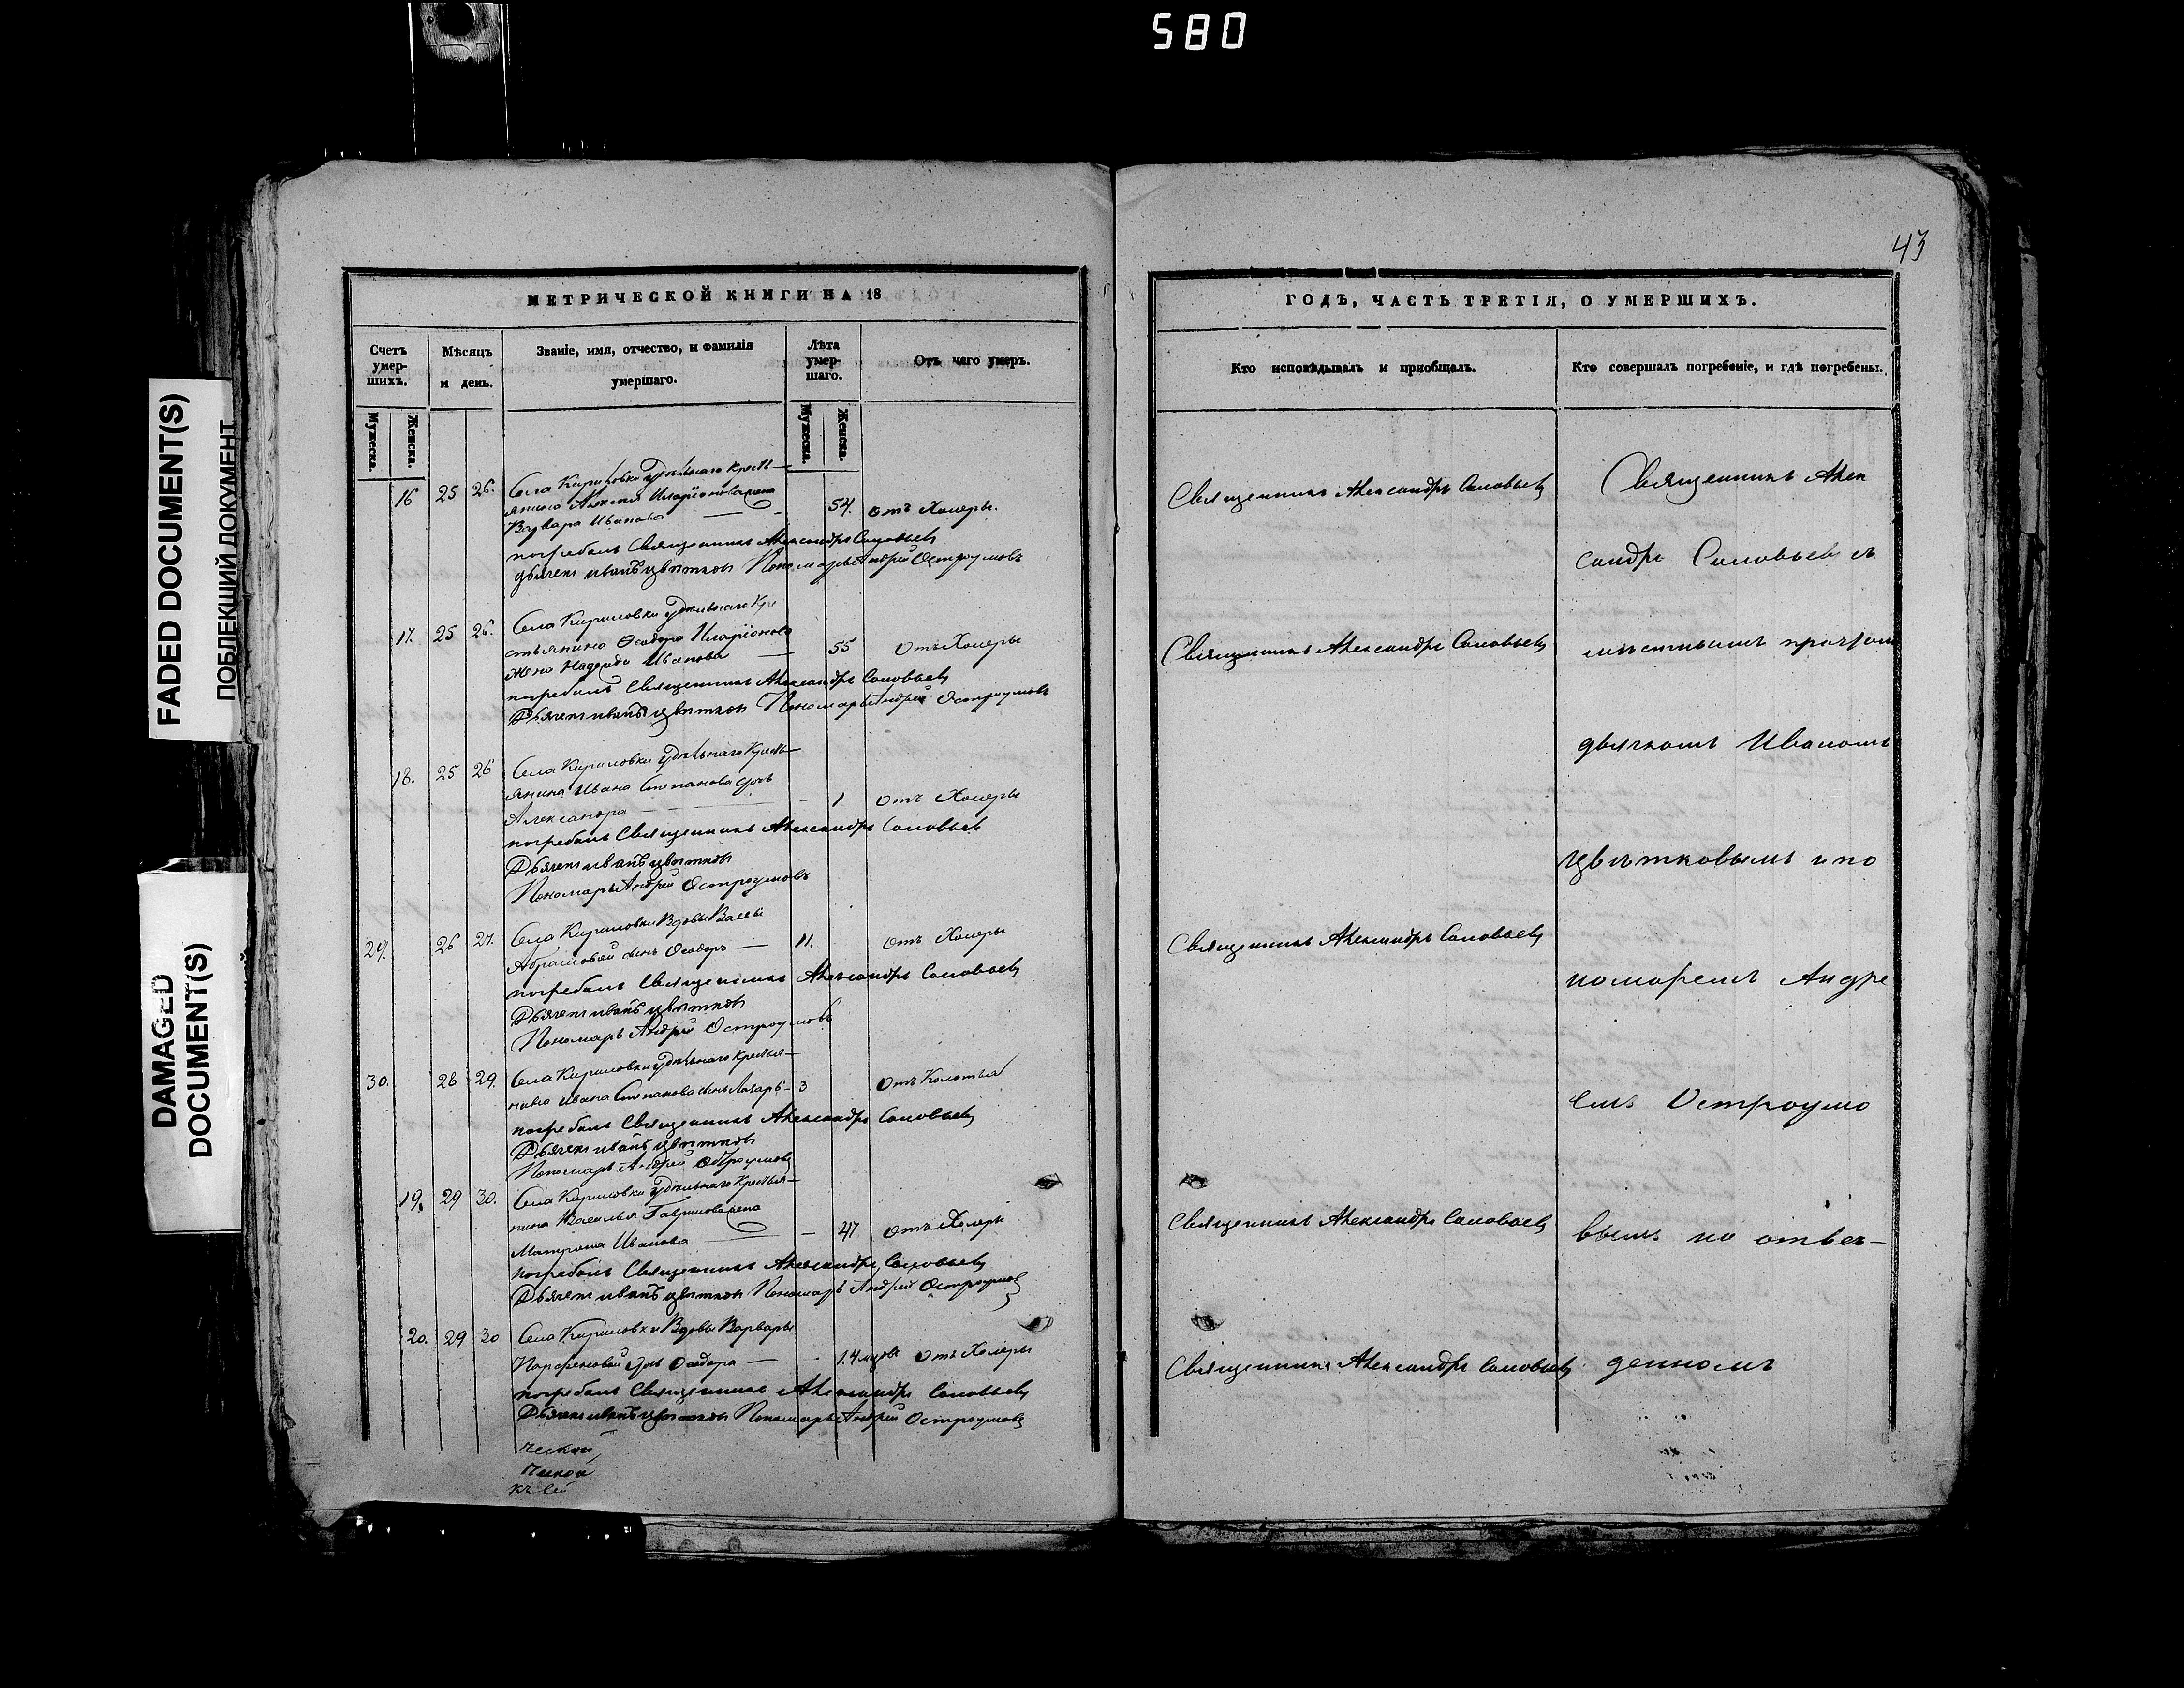 580
FADED DOCUMENT(S)
ПОБЛЕКШИЙ ДОКУМЕНТ
DAMAGED
DOCUMENT(S)
МЕТРИЧЕСКОЙ КНИГИ НА 18
Счетъ
умер-
шихъ.
Мужеска.
Женска.
Мѣсяцъ
и день.
Званіе, имя, отчество, и фамилія
умершаго.
Лѣта
умер-
шаго.
Мужеска.
Женска.
Отъ чего умеръ.
16 25 26. Села Кириловки Удѣльнаго Кресть-
янина Алексѣя Иларіонова жена
Варвара Иванова — 54. отъ Холеры.
погребалъ Священникъ Александръ Соловьевъ
дьячекъ иванъ цвѣтковъ Пономарь Андрей Остроумовъ
17. 25 26. Села Кириловки Удѣльнаго Кре
стьянина Ѳеодора Иларіонова
жена Надежда Иванова — 55 Отъ Холеры
погребалъ Священникъ Александръ Соловьевъ
Дьячекъ иванъ цвѣтковъ Пономарь Андрей Остроумовъ
18. 25 26 Села Кириловки Удѣльнаго Кресть-
янина Ивана Степанова дочь
Александра — 1 Отъ Холеры
погребалъ Священникъ Александръ Соловьевъ
Дьячекъ иванъ цвѣтковъ
Пономарь Андрей Остроумовъ
29. 26 27. Села Кириловки Вдовы Вассы
Абрамовой сынъ Ѳеодоръ — 11. Отъ Холеры
погребалъ Священникъ Александръ Соловьевъ
Дьячекъ иванъ цвѣтковъ
Пономарь Андрей Остроумовъ
30. 28 29. Села Кириловки Удѣльнаго Крестья-
нина Ивана Степанова сынъ Лазарь - 3 Отъ Колотья
погребалъ Священникъ Александръ Соловьевъ
Дьячекъ иванъ цвѣтковъ
Пономарь Андрей Остроумовъ
19. 29 30. Села Кириловки Удѣльнаго Крестья-
нина Василья Гаврилова жена
Матрона Иванова — 47 Отъ Холеры
погребалъ Священникъ Александръ Соловьевъ
Дьячекъ иванъ цвѣтковъ Пономарь Андрей Остроумовъ
20. 29 30 Села Кириловки Вдовы Варвары
Парфеновой дочь Ѳедора — Отъ Холеры
погребалъ Священникъ Александръ Соловьевъ
Дьячекъ иванъ цвѣтковъ Пономарь Андрей Остроумовъ
ческой
къ сей
43
ГОДЪ, ЧАСТЬ ТРЕТІЯ, О УМЕРШИХЪ.
Кто исповѣдывалъ и пріобщалъ.
Кто совершалъ погребеніе, и гдѣ погребены.
Священникъ Александръ Соловьевъ
Священникъ Александръ Соловьевъ
Священникъ Александръ Соловьевъ
Священникъ Александръ Соловьевъ
Священникъ Александръ Соловьевъ
Священникъ Алек
сандръ Соловьевъ съ
мѣстнымъ причтомъ
дьячкомъ Иваномъ
Цвѣтковымъ и по
номаремъ Андре
емъ Остроумо
вымъ на отвек-
денномъ